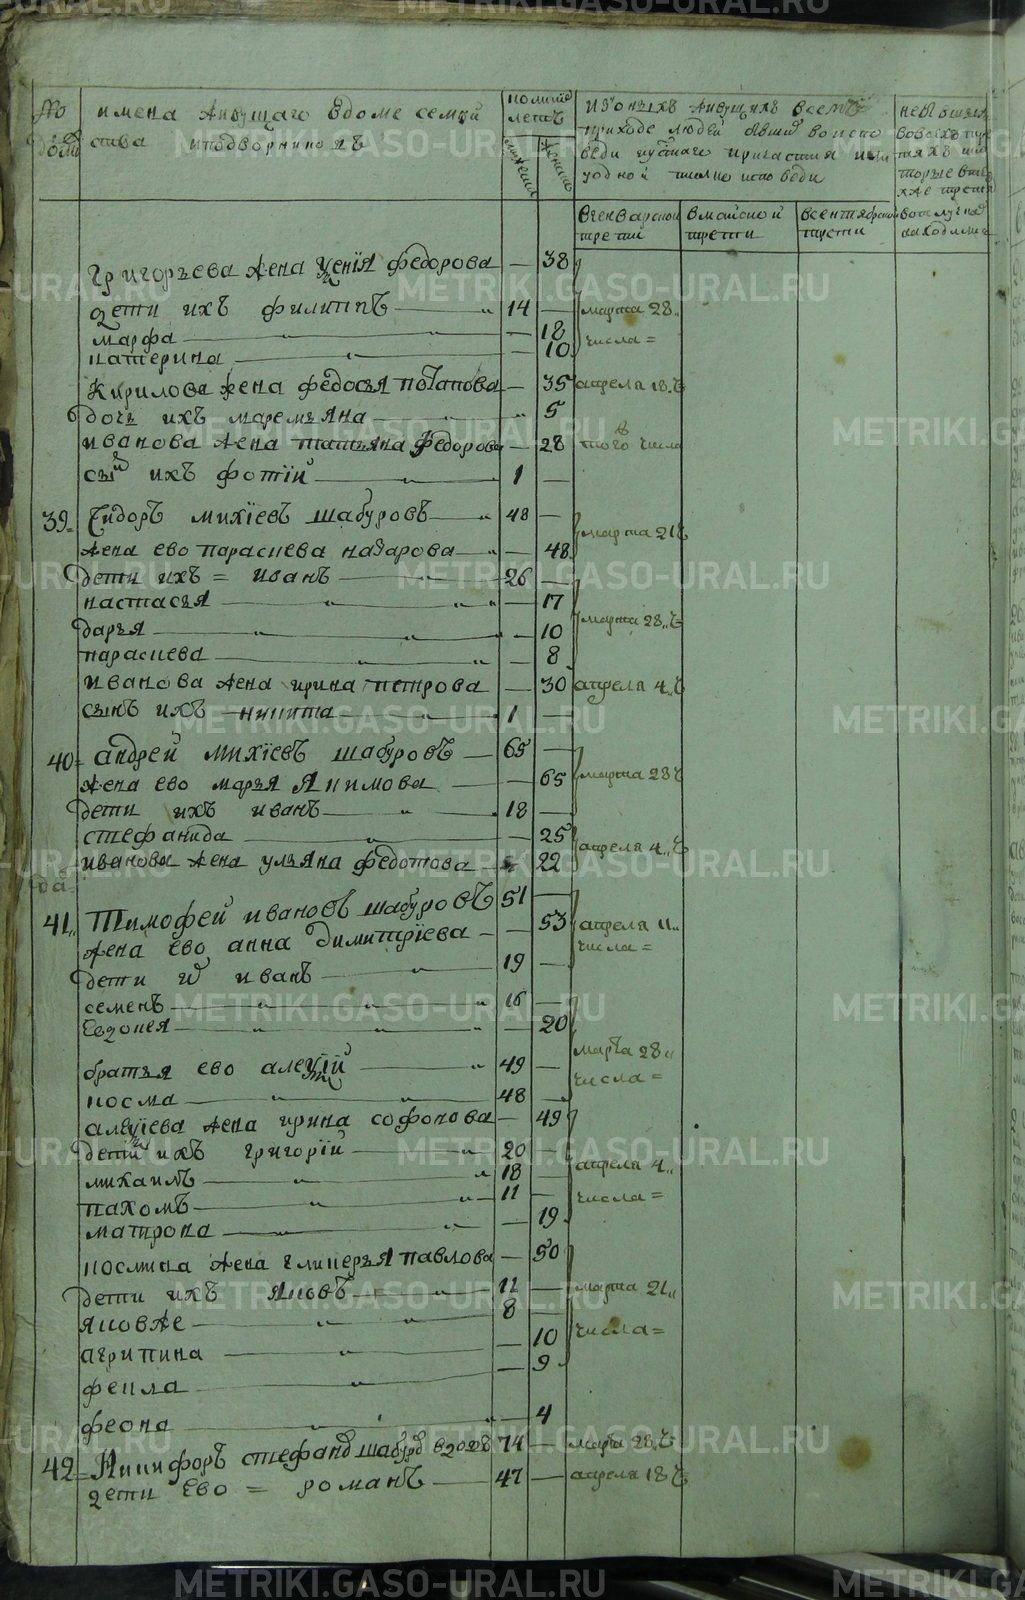 METRIKI.GASO-URAL.RU
№ доми
имена живущаго вдоме семей
ства иподворникаѣ
колики
летъ
мужеска
женска
изонехъ живущихъ всемъ
приходе людей бывши воиспо
веди исвтаго причастия или
уодной токмо исповеди
вгенварской
трети
вмайской
трети
всентябрской
трети
вотлучке
находились
григорьева жена ксенїя федорова — 38
дети ихъ филиппъ — 14 — марта 28
марфа — 18 числа =
катерина — 10
Кирилова жена федосья потапова — 35 апреля 18. ч
дочь ихъ маремъяна — 5
иванова жена татьяна федорова — 28 того числа
сынъ ихъ фотїй — 1 —
39 = Сидоръ михїевъ шабуровъ — 48 — марта 21 ч
жена ево параскева назарова — 48
дети ихъ = иванъ — 26 —
настасья — 17
дарья — 10 марта 28 „ ч
параскева — 8
иванова жена ирина петрова — 30 апреля 4 „ ч
сынъ ихъ никита — 1 —
40 = андрей михїевъ шабуровъ — 65 —
жена ево марья якимова — 65 марта 28 ч
дети ихъ иванъ — 18 —
стефанида — 25 апреля 4 „ ч
иванова жена ульяна федотова — 22
41 „ Тимофей ивановъ шабуровъ 51 —
жена ево анна димитрїева — 53 апреля 11 „
числа =
дети иванъ — 19 —
семенъ — 16 —
Евдокея — 20
марта 28 „
братья ево алексїй — 49 — числа =
косма — 48 —
алексїева жена ирина софонова — 49
дети ихъ григорїй — 20 — апреля 4 „
михаилъ — 18 —
пахомъ — 11 — числа =
матрона — 19
космина жена гликерья павлова — 50
дети ихъ яковъ — 11 — марта 21 „
яковже — 8 —
агрипина — 10 числа =
фекла — 9
феона — 4
42 = Никифоръ стефановъ шабуровъ вдовъ 74 — марта 28 ч
дети ево = романъ — 47 — апреля 18 ч